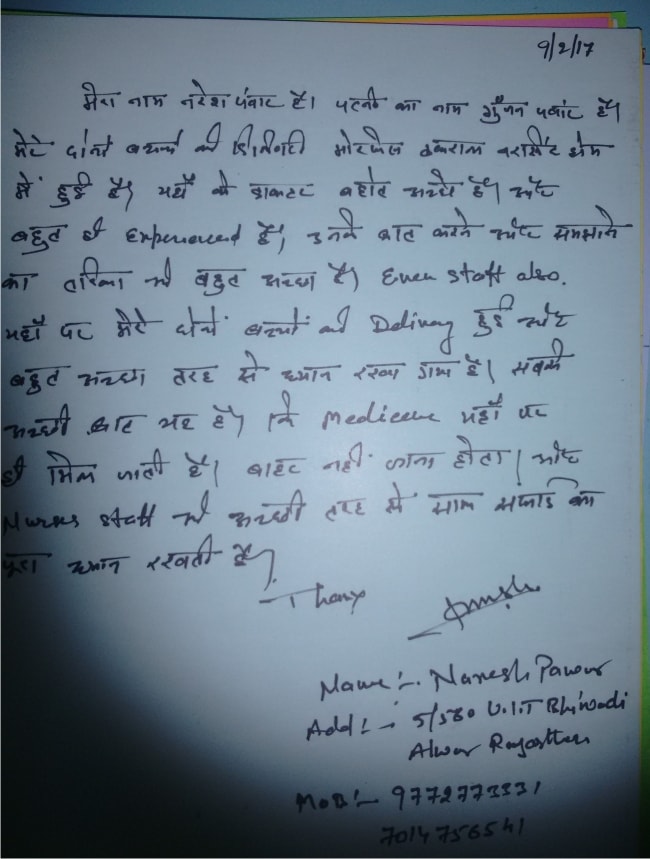 9/2/17
मेरा नाम नरेश पंवार है। पत्नी का नाम गुँजन पवांर है।
मेरे दोनों बच्चों की डिलिवरी नरसिंग होम
में हुई है। यहाँ के डाक्टर बहोत अच्छे है। और
बहुत ही Experienced है, उनके बात करने और समझाने
का तरिका भी बहुत अच्छा है। Even staff also.
यहाँ पर मेरे दोनों बच्चों की Delivery हुई और
बहुत अच्छा तरह से ध्यान रखा गया है। सबसे
अच्छी बात यह है। कि Medicine यहाँ पर
ही मिल जाती है। बाहर नहीं जाना होता। और
Nurses staff भी अच्छी तरह से साफ सफाई का
पूरा ध्यान रखती है।
Thanx
Name :- Naresh Pawar
Add :- 5/580 U.I.T Bhiwadi
Alwar Rajasthan
Mob :- 9772773331
7014756541